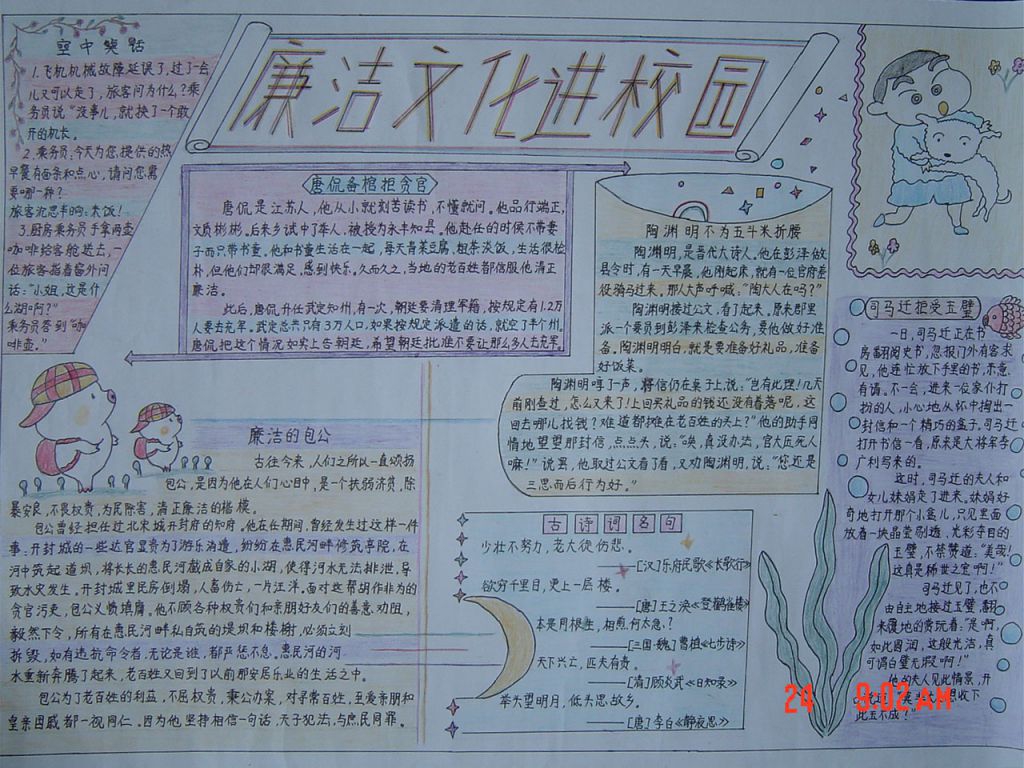 廉洁文化进校园
空中笑话
1.飞机机械故障延误了,过了一会
儿又可以走了,旅客问为什么?乘
务员说“没事儿,就换了一个敢
开的机长。
2.乘务员:今天为您提供的热
早餐有面条和点心,请问您需
要哪一种?
旅客沉思半晌:米饭!
3.厨房乘务员手拿两壶
咖啡给客舱送去,一
位旅客指着窗外问
:“小姐,这是什
么湖啊?”
乘务员答到“咖
啡壶。”
唐侃备棺拒贪官
唐侃是江苏人,他从小就刻苦读书,不懂就问。他品行端正,
文质彬彬。后来乡试中了举人,被授为永丰知县。他赴任的时侯不带妻
子而只带书童。他和书童生活在一起,每天青菜豆腐,粗茶淡饭,生活很俭
朴,但他们却很满足,感到快乐。久而久之,当地的老百姓都信服他清正
廉洁。
此后,唐侃升任武定知州,有一次,朝廷要清理军籍,按规定有1.2万
人要去充军。武定总共只有3万人口,如果按规定派遣的话,就空了半个州。
唐侃把这个情况如实上告朝廷,希望朝廷批准不要让那么多人去充军。
陶渊明不为五斗米折腰
陶渊明,是晋代大诗人。他在彭泽做
县令时,有一天早晨,他刚起床,就有一位官府差
役骑马过来,那人大声呼喊:“陶大人在吗?”
陶渊明接过公文,看了起来。原来郡里
派一个要员到彭泽来检查公务,要他做好准
备。陶渊明明白,就是要准备好礼品,准备
好饭菜。
陶渊明哼了一声,将信仍在桌子上,说:“岂有此理!几天
前刚查过,怎么又来了!上回买礼品的钱还没有着落呢,这
回去哪儿找钱?难道都摊在老百姓的头上?”他的助手同
情地望望那封信,点点头,说:“唉,真没办法,官大压死人
嘛!”说罢,他取过公文看了看,又劝陶渊明,说:“您还是
三思而后行为好。”
司马迁拒受玉璧
一日,司马迁正在书
房翻阅史书,忽报门外有客求
见,他连忙放下手里的书,示意
有请。不一会,进来一位家仆打
扮的人,小心地从怀中掏出一
封信和一个精巧的盒子。司马迁
打开书信一看,原来是大将军李
广利写来的。
这时,司马迁的夫人和
女儿妹娟走了进来。妹娟好
奇地打开那个小盒儿,只见里面
放着一块晶莹剔透,光彩夺目的
玉璧,不禁赞道:“美哉!
这真是稀世之宝啊!”
司马迁见了,也不
由自主地接过玉璧,翻
来覆地的赏玩着:“是啊,
如此圆润,这般光洁,真
可谓白璧无瑕啊!”
他的夫人见此情景,开
想收下
此玉不成?”
廉洁的包公
古往今来,人们之所以一直颂扬
包公,是因为他在人们心目中,是一个扶弱济贫,除
暴安良,不畏权贵,为民除害,清正廉洁的楷模。
包公曾经担任过北宋城开封府的知府。他在任期间,曾经发生过这样一件
事:开封城的一些达官显贵为了游乐消遣,纷纷在惠民河畔修筑亭院,在
河中筑起道坝,将长长的惠民河截成自家的小湖,使得河水无法排泄,导
致水灾发生。开封城里民房倒塌,人畜伤亡,一片汪洋。面对这帮胡作非为的
贪官污吏,包公义愤填膺。他不顾各种权贵们和亲朋好友们的善意劝阻,
毅然下令,所有在惠民河畔私自筑的堤坝和楼榭,必须立刻
拆毁,如有违抗命令者,无论是谁,都严惩不怠。惠民河的河
水重新奔腾了起来,老百姓又回到了以前那安居乐业的生活之中。
包公为了老百姓的利益,不屈权贵,秉公办案,对寻常百姓,至爱亲朋和
皇亲国戚都一视同仁。因为他坚持相信一句话,天子犯法,与庶民同罪。
古诗词名句
少壮不努力,老大徒伤悲。
——[汉]乐府民歌《长歌行》
欲穷千里目,更上一层楼。
——[唐]王之涣《登鹳雀楼》
本是同根生,相煎何太急?
——[三国·魏]曹植《七步诗》
天下兴亡,匹夫有责。
——[清]顾炎武《日知录》
举头望明月,低头思故乡。
——[唐]李白《静夜思》
24 9:02 AM